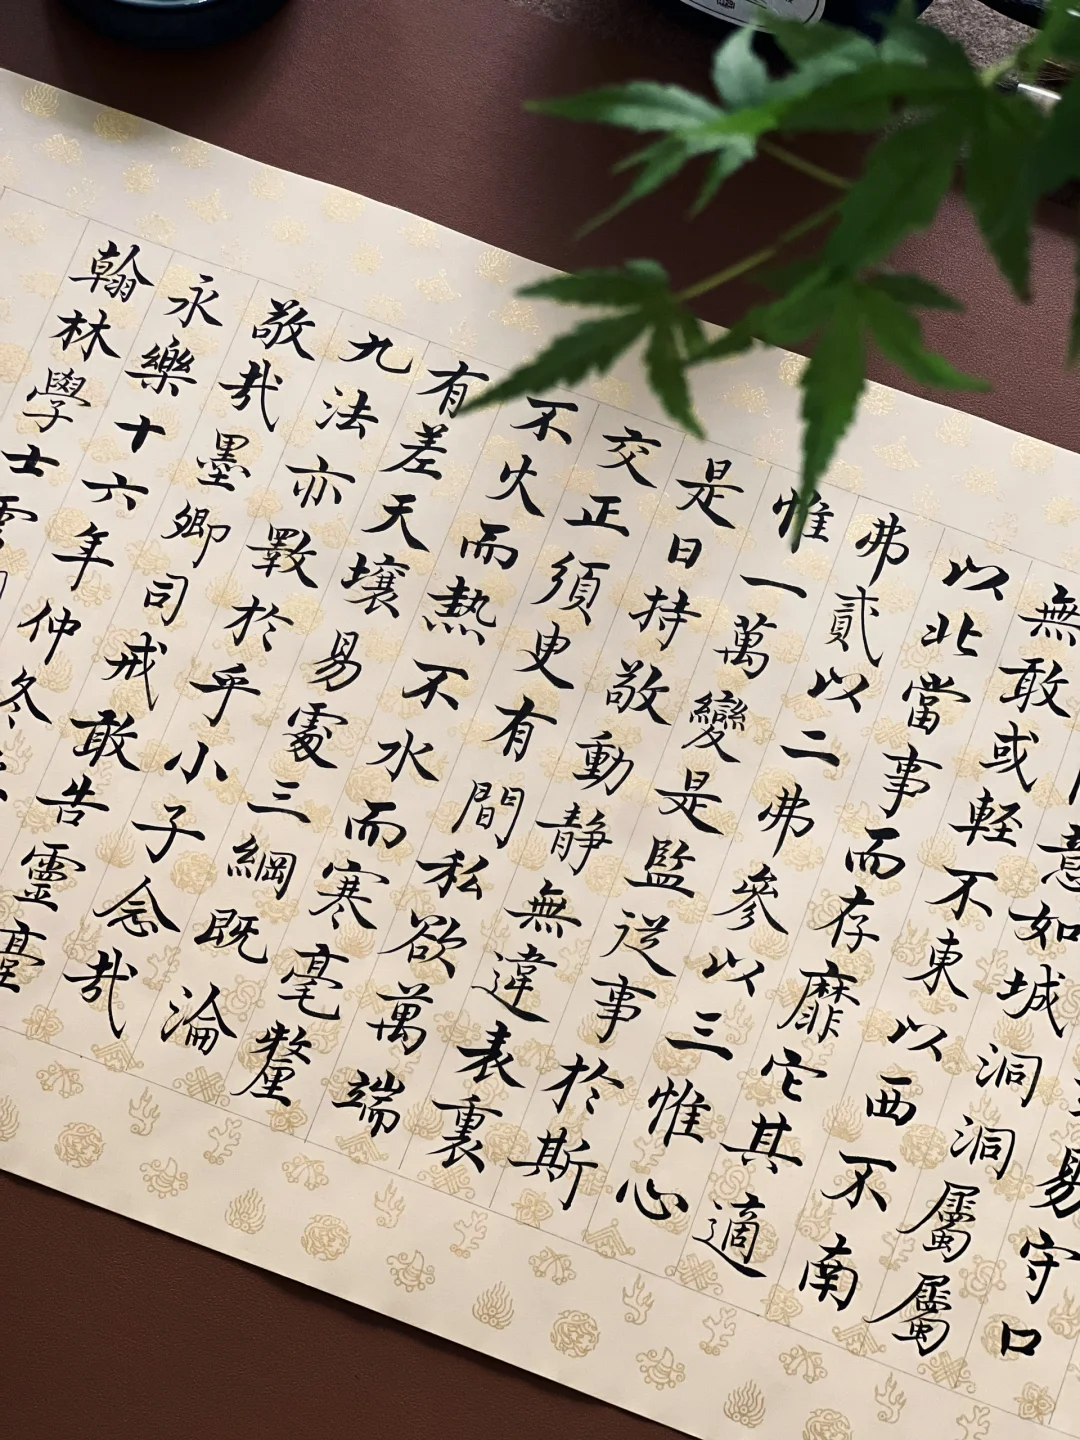 易守口
意如城洞洞屬屬
無敢或輕不東以西不南
以北當事而存靡它其適
弗貳以二弗參以三惟心
惟一萬變是監從事於斯
是日持敬動靜無違表裏
交正須臾有間私欲萬端
不火而熱不水而寒毫釐
有差天壤易處三綱既淪
九法亦斁於乎小子念哉
敬哉墨卿司戒敢告靈臺
永樂十六年仲冬
翰林學士雲